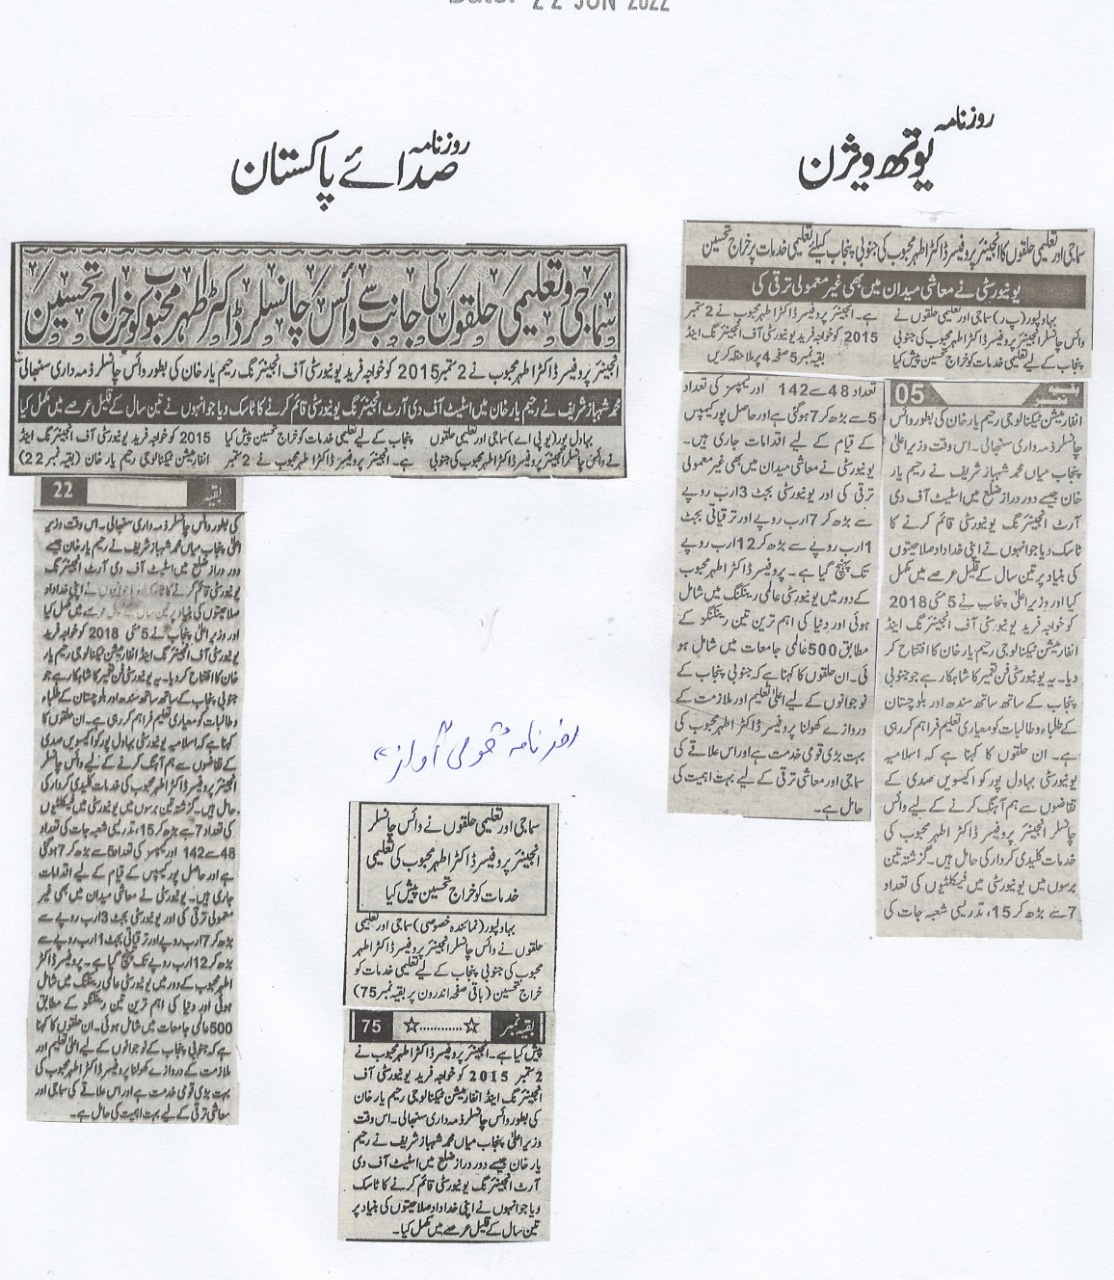 Date: 22 JUN 2022
روزنامہ
یوتھ ویژن
سماجی اور تعلیمی حلقوں کا انجینئر پروفیسر ڈاکٹر اطہر محبوب کی جنوبی پنجاب کیلئے تعلیمی خدمات پر خراج تحسین
یونیورسٹی نے معاشی میدان میں بھی غیر معمولی ترقی کی
بہاولپور (پ ر) سماجی اور تعلیمی حلقوں نے
وائس چانسلر انجینئر پروفیسر ڈاکٹر اطہر محبوب کی جنوبی
پنجاب کے لیے تعلیمی خدمات کو خراج تحسین پیش کیا
ہے۔ انجینئر پروفیسر ڈاکٹر اطہر محبوب نے 2 ستمبر
2015 کو خواجہ فرید یونیورسٹی آف انجینئرنگ اینڈ
بقیہ نمبر 5 صفحہ 4 پر ملاحظہ کریں
بقیہ نمبر 05
انفارمیشن ٹیکنالوجی رحیم یار خان کی بطور وائس
چانسلر ذمہ داری سنبھالی۔ اس وقت وزیر اعلیٰ
پنجاب میاں محمد شہباز شریف نے رحیم یار
خان جیسے دور دراز ضلع میں اسٹیٹ آف دی
آرٹ انجینئرنگ یونیورسٹی قائم کرنے کا
ٹاسک دیا جو انہوں نے اپنی خداداد صلاحیتوں
کی بنیاد پر تین سال کے قلیل عرصے میں مکمل
کیا اور وزیر اعلیٰ پنجاب نے 5 مئی 2018
کو خواجہ فرید یونیورسٹی آف انجینئرنگ اینڈ
انفارمیشن ٹیکنالوجی رحیم یار خان کا افتتاح کر
دیا۔ یہ یونیورسٹی فن تعمیر کا شاہکار ہے جو جنوبی
پنجاب کے ساتھ ساتھ سندھ اور بلوچستان
کے طلباء و طالبات کو معیاری تعلیم فراہم کر رہی
ہے۔ ان حلقوں کا کہنا ہے کہ اسلامیہ
یونیورسٹی بہاول پور کو اکیسویں صدی کے
تقاضوں سے ہم آہنگ کرنے کے لیے وائس
چانسلر انجینئر پروفیسر ڈاکٹر اطہر محبوب کی
خدمات کلیدی کردار کی حامل ہیں۔ گزشتہ تین
برسوں میں یونیورسٹی میں فیکلٹیوں کی تعداد
7 سے بڑھ کر 15، تدریسی شعبہ جات کی
تعداد 48 سے 142 اور کیمپس کی تعداد
5 سے بڑھ کر 7 ہو گئی ہے اور حاصل پور کیمپس
کے قیام کے لیے اقدامات جاری ہیں۔
یونیورسٹی نے معاشی میدان میں بھی غیر معمولی
ترقی کی اور یونیورسٹی بجٹ 3 ارب روپے
سے بڑھ کر 7 ارب روپے اور ترقیاتی بجٹ
1 ارب روپے سے بڑھ کر 12 ارب روپے
تک پہنچ گیا ہے۔ پروفیسر ڈاکٹر اطہر محبوب
کے دور میں یونیورسٹی عالمی رینکنگ میں شامل
ہوئی اور دنیا کی اہم ترین تین رینکنگز کے
مطابق 500 عالمی جامعات میں شامل ہو
ئی۔ ان حلقوں کا کہنا ہے کہ جنوبی پنجاب کے
نوجوانوں کے لیے اعلیٰ تعلیم اور ملازمت کے
دروازے کھولنا پروفیسر ڈاکٹر اطہر محبوب کی
بہت بڑی قومی خدمت ہے اور اس علاقے کی
سماجی اور معاشی ترقی کے لیے بہت اہمیت کی
حامل ہے۔
روزنامہ
صدائے پاکستان
سماجی و تعلیمی حلقوں کی جانب سے وائس چانسلر ڈاکٹر اطہر محبوب کو خراج تحسین
انجینئر پروفیسر ڈاکٹر اطہر محبوب نے 2 ستمبر 2015 کو خواجہ فرید یونیورسٹی آف انجینئرنگ رحیم یار خان کی بطور وائس چانسلر ذمہ داری سنبھالی
محمد شہباز شریف نے رحیم یار خان میں اسٹیٹ آف دی آرٹ انجینئرنگ یونیورسٹی قائم کرنے کا ٹاسک دیا جو انہوں نے تین سال کے قلیل عرصے میں مکمل کیا
بہاول پور (یو پی اے) سماجی اور تعلیمی حلقوں
نے وائس چانسلر انجینئر پروفیسر ڈاکٹر اطہر محبوب کی جنوبی
پنجاب کے لیے تعلیمی خدمات کو خراج تحسین پیش کیا
ہے۔ انجینئر پروفیسر ڈاکٹر اطہر محبوب نے 2 ستمبر
2015 کو خواجہ فرید یونیورسٹی آف انجینئرنگ اینڈ
انفارمیشن ٹیکنالوجی رحیم یار خان (بقیہ نمبر 22)
بقیہ 22
کی بطور وائس چانسلر ذمہ داری سنبھالی۔ اس وقت وزیر
اعلیٰ پنجاب میاں محمد شہباز شریف نے رحیم یار خان جیسے
دور دراز ضلع میں اسٹیٹ آف دی آرٹ انجینئرنگ
یونیورسٹی قائم کرنے کا ٹاسک دیا جو انہوں نے اپنی خداداد
صلاحیتوں کی بنیاد پر تین سال کے قلیل عرصے میں مکمل کیا
اور وزیر اعلیٰ پنجاب نے 5 مئی 2018 کو خواجہ فرید
یونیورسٹی آف انجینئرنگ اینڈ انفارمیشن ٹیکنالوجی رحیم یار
خان کا افتتاح کر دیا۔ یہ یونیورسٹی فن تعمیر کا شاہکار ہے جو
جنوبی پنجاب کے ساتھ ساتھ سندھ اور بلوچستان کے طلباء
و طالبات کو معیاری تعلیم فراہم کر رہی ہے۔ ان حلقوں کا
کہنا ہے کہ اسلامیہ یونیورسٹی بہاول پور کو اکیسویں صدی
کے تقاضوں سے ہم آہنگ کرنے کے لیے وائس چانسلر
انجینئر پروفیسر ڈاکٹر اطہر محبوب کی خدمات کلیدی کردار کی
حامل ہیں۔ گزشتہ تین برسوں میں یونیورسٹی میں فیکلٹیوں
کی تعداد 7 سے بڑھ کر 15، تدریسی شعبہ جات کی تعداد
48 سے 142 اور کیمپس کی تعداد 5 سے بڑھ کر 7 ہو گئی
ہے اور حاصل پور کیمپس کے قیام کے لیے اقدامات
جاری ہیں۔ یونیورسٹی نے معاشی میدان میں بھی غیر
معمولی ترقی کی اور یونیورسٹی بجٹ 3 ارب روپے سے
بڑھ کر 7 ارب روپے اور ترقیاتی بجٹ 1 ارب روپے سے
بڑھ کر 12 ارب روپے تک پہنچ گیا ہے۔ پروفیسر ڈاکٹر
اطہر محبوب کے دور میں یونیورسٹی عالمی رینکنگ میں شامل
ہوئی اور دنیا کی اہم ترین تین رینکنگز کے مطابق
500 عالمی جامعات میں شامل ہوئی۔ ان حلقوں کا کہنا
ہے کہ جنوبی پنجاب کے نوجوانوں کے لیے اعلیٰ تعلیم اور
ملازمت کے دروازے کھولنا پروفیسر ڈاکٹر اطہر محبوب کی
بہت بڑی قومی خدمت ہے اور اس علاقے کی سماجی اور
معاشی ترقی کے لیے بہت اہمیت کی حامل ہے۔
روزنامہ "قومی آواز"
سماجی اور تعلیمی حلقوں نے وائس چانسلر
انجینئر پروفیسر ڈاکٹر اطہر محبوب کی تعلیمی
خدمات کو خراج تحسین پیش کیا
بہاولپور (نمائندہ خصوصی) سماجی اور تعلیمی
حلقوں نے وائس چانسلر انجینئر پروفیسر ڈاکٹر اطہر
محبوب کی جنوبی پنجاب کے لیے تعلیمی خدمات کو
خراج تحسین (باقی صفحہ اندرون پر بقیہ نمبر 75)
بقیہ نمبر ☆............☆ 75
پیش کیا ہے۔ انجینئر پروفیسر ڈاکٹر اطہر محبوب نے
2 ستمبر 2015 کو خواجہ فرید یونیورسٹی آف
انجینئرنگ اینڈ انفارمیشن ٹیکنالوجی رحیم یار خان
کی بطور وائس چانسلر ذمہ داری سنبھالی۔ اس وقت
وزیر اعلیٰ پنجاب میاں محمد شہباز شریف نے رحیم
یار خان جیسے دور دراز ضلع میں اسٹیٹ آف دی
آرٹ انجینئرنگ یونیورسٹی قائم کرنے کا ٹاسک
دیا جو انہوں نے اپنی خداداد صلاحیتوں کی بنیاد پر
تین سال کے قلیل عرصے میں مکمل کیا۔